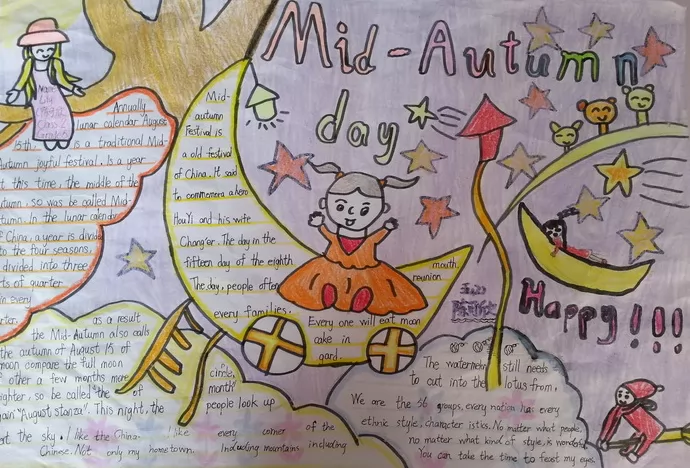 Mid-Autumn
day
Happy!!!
Annually
lunar calendar August
15th. is a traditional Mid-
Autumn joyful festival. Is a year
at this time, the middle of the
autumn, so was be called Mid-
tumn. In the lunar calendar
of China, a year is divided
to the four seasons,
divided into three
rts of quarter
in every
rter.
as a result
the Mid-Autumn also calls
the autumn of August 15 of
moon compare the full moon
other a few months more
ghter, so be called "the of
ain "August stanza". This night, the
people look up
at the sky. I like the China. I like every corner of the
Chinese. Not only my hometown. Including mountains including
Mid-
autumn
Festival is
a old festival
of China. It said
to commemora a hero
HouYi and his wife
Chang'er. The day in the
fifteen day of the eighth
mouth.
The day, people often
reunion
every families.
Every one will eat moon
cake in
gard
circle,
month
The watermelon still needs
to cut into the lotus from,
We are the 56 groups, every nation has every
ethnic style, character istics. No matter what people,
no matter what kind of style, is wonderful
You can take the time to feast my eyes.